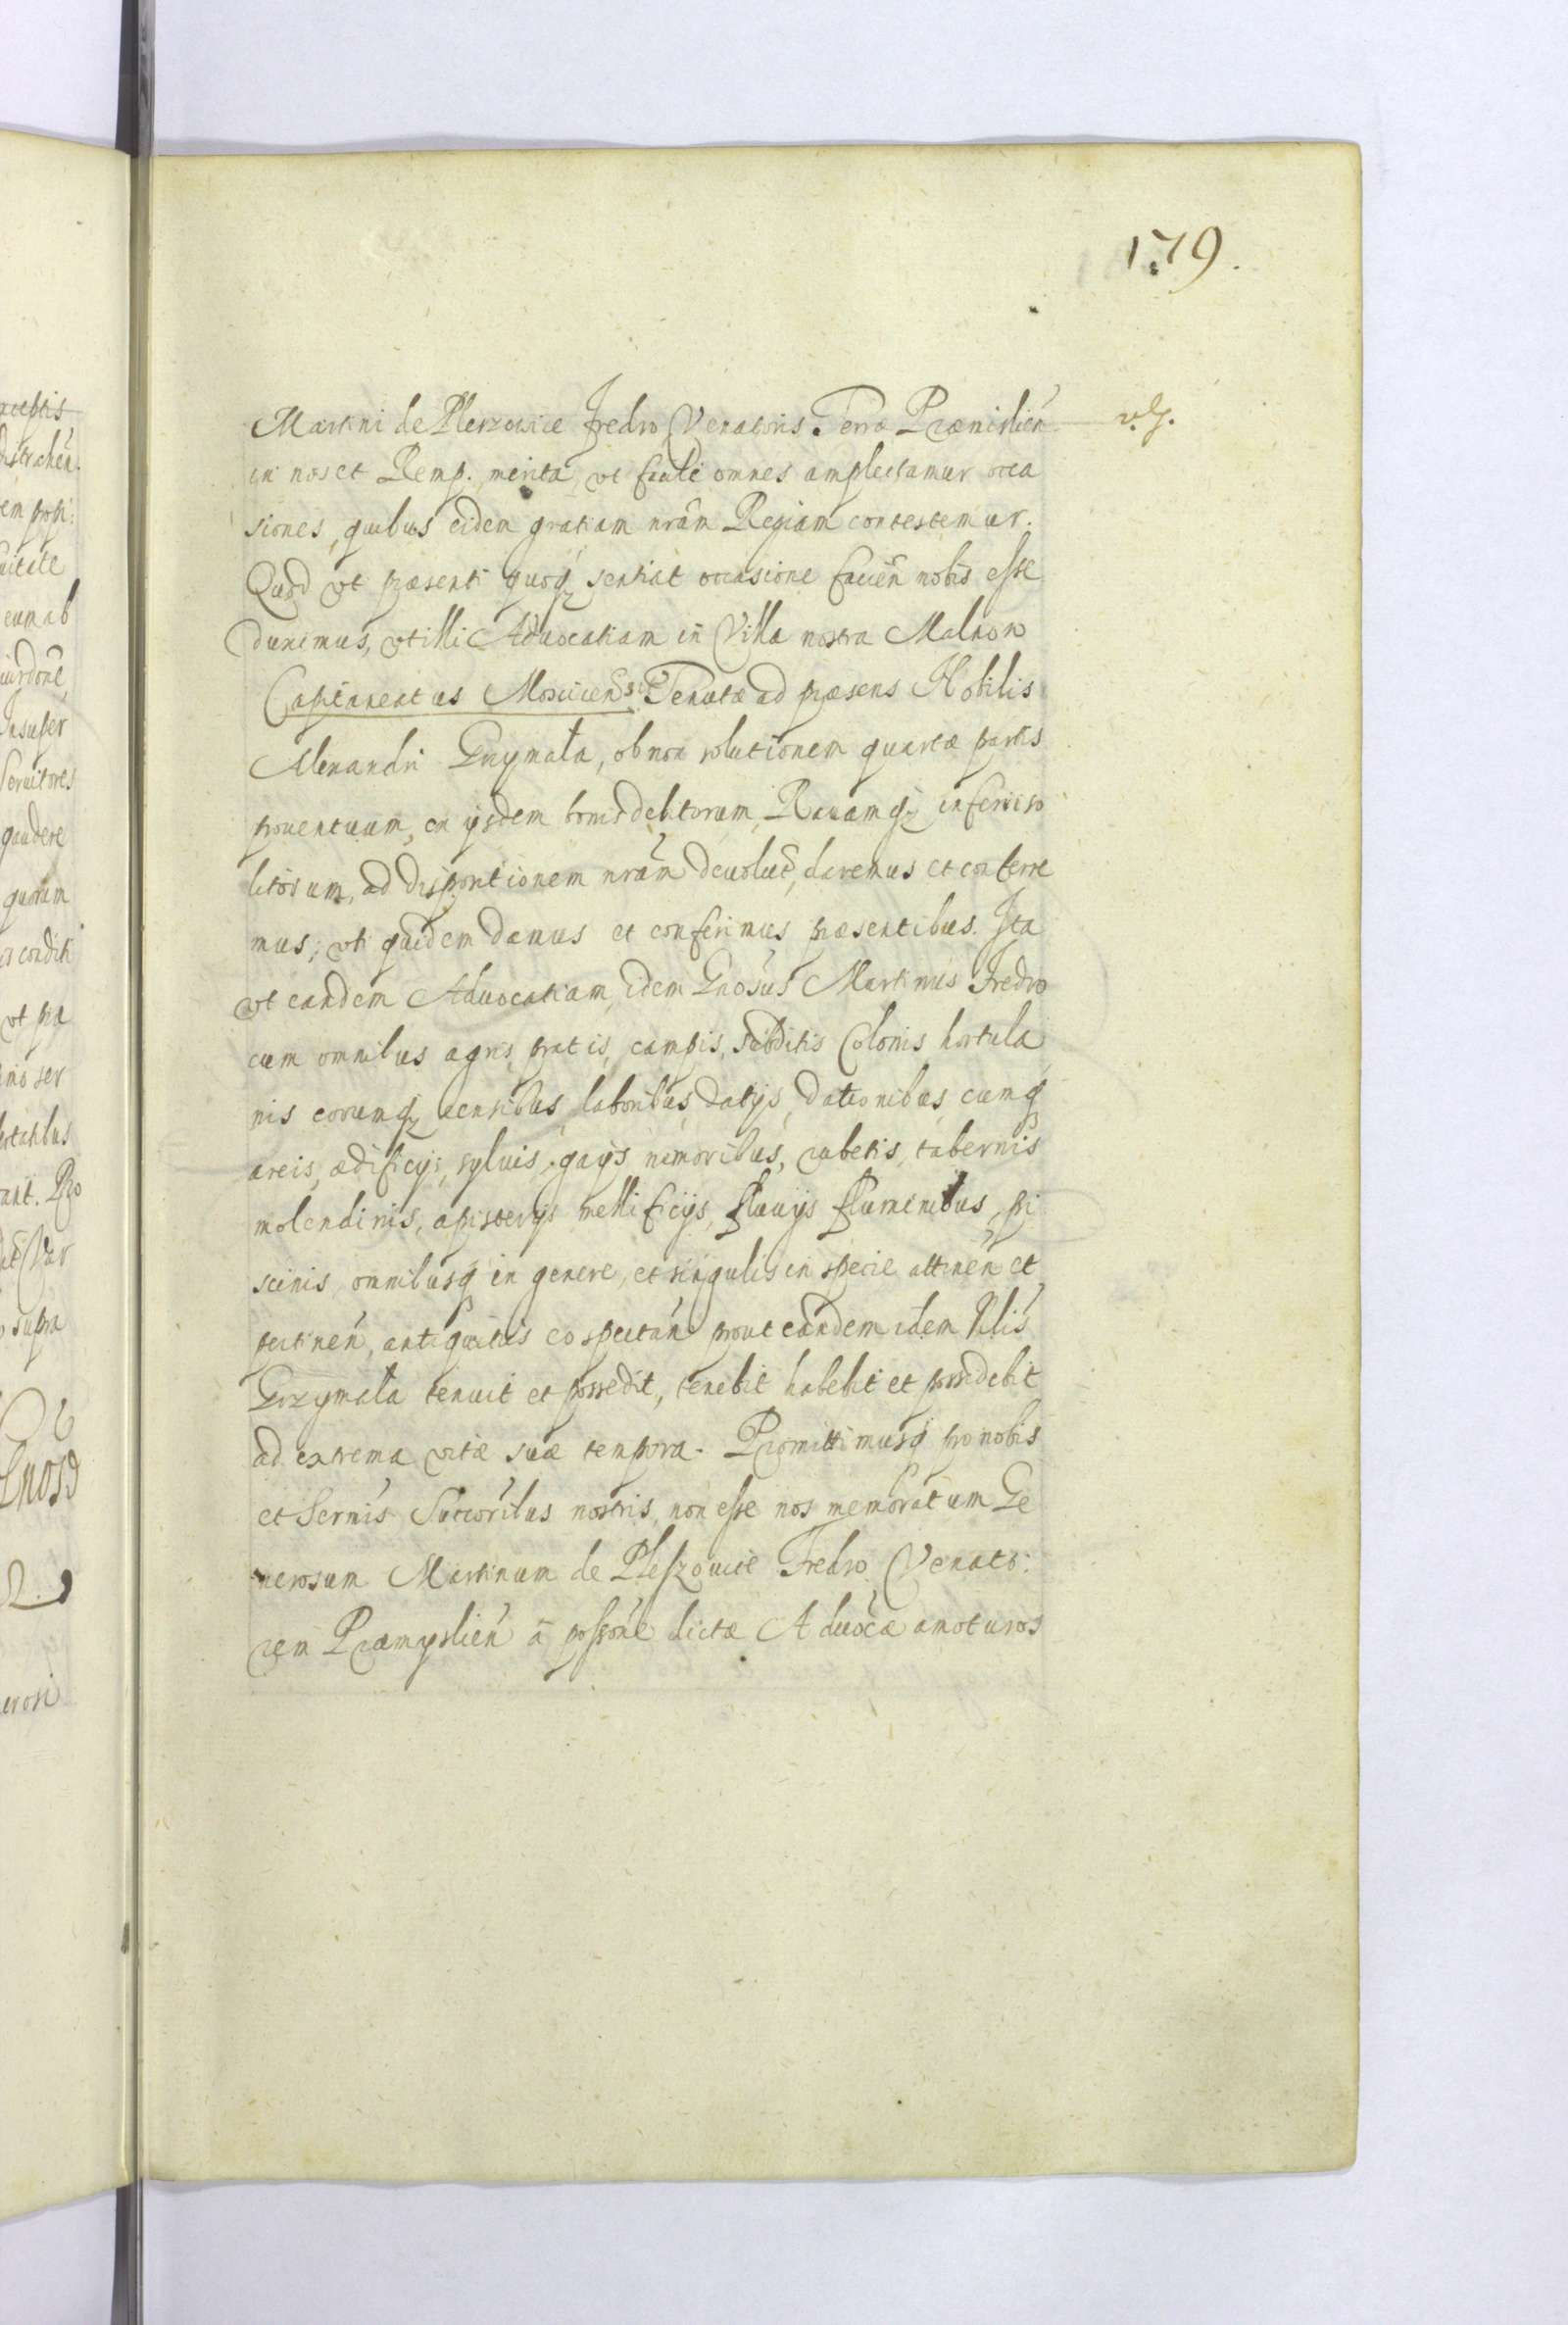 179.
Martini de Pleszowice Fredro Venatoris Terræ Præmislień v. g.
in nos et Remp. merita, vt facile omnes amplectamur occa
siones, quibus eidem gratiam nrãm Regiam contestemur.
Quod vt præsenti quoq sentiat occasione facieñ nobis esse
duximus, vt illi Aduocatiam in Villa nostra Malnow
Capitaneatus Mosciceñsis Tenutæ ad præsens Nobilis
Alexandri Grzymała, ob non solutionem quartæ partis
prouentuum, ex ysdem bonis debitorum, Rauamq inferri so
litorum, ad dispositionem nrãm deuolut, daremus et conferre
mus, vti quidem damus et conferimus præsentibus. Ita
vt eandem Aduocatiam, idem Gnosus Martinus Fredro
cum omnibus agris, pratis, campis, subditis Colonis hortula
nis eorumq censibus, laboribus, datijs, dationibus, cumq
areis, ædificijs, syluis, gays nemoribus, rubetis, tabernis
molendinis, apisterijs mellificijs, fluuijs fluminibus, pi
scinis, omnibusq in genere, et singulis in specie attineñ et
pertineñ, antiquitus eo spectañ prout eandem idem Nlis
Grzymała tenuit et possedit, tenebit habebit et possidebit
ad extrema vitæ suæ tempora. Promittimusq pro nobis
et Sernis Succoribus nostris, non esse nos memoratum Ge
nerosum Martinum de Pleszowice Fredro Venato:
rem Præmyslień a possone dictæ Aduocæ amoturos